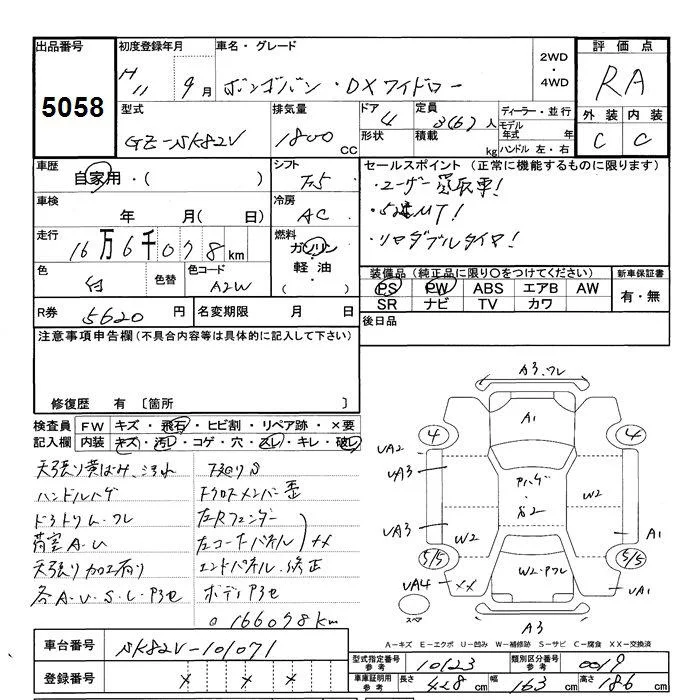 出品番号 5058
初度登録年月 H11 9月
車名・グレード ボンゴバン・DXワイドロー
2WD・4WD
評価点 RA
外装 内装
C C
型式 GE-SK82V
排気量 1800 CC
ドア 4
形状
定員 3(6)人
積載 kg
ディーラー・並行
モデル年式 年
ハンドル 左・右
車歴 自家用・( )
シフト F5
セールスポイント (正常に機能するものに限ります)
・ユーザー買取車!
・5速MT!
・リヤダブルタイヤ!
車検 年 月( 日)
冷房 AC
走行 16万6千078km
燃料 ガソリン・軽油・( )
色 白 色替
色コード A2W
装備品 (純正品に限り○をつけてください)
新車保証書
PS PW ABS エアB AW
SR ナビ TV カワ
有・無
R券 5620円
名変期限 月 日
後日品
注意事項申告欄(不具合内容等は具体的に記入して下さい)
修復歴 有 〔箇所 〕
検査員 FW キズ・飛石・ヒビ割・リペア跡・×要
記入欄 内装 キズ・汚レ・コゲ・穴・スレ・キレ・破レ
天張り黄ばみ、汚れ
ハンドルハゲ
ドアトリム・ワレ
荷室A・U
天張り加工有り
各A・U・S・L・P3セ
下廻りS
左Rフェンダー
左コーナーパネル ××
エンドパネル・修正
ボディP3セ
166078km
A3、ワレ
4 A1 4
UA2
UA3
Pハゲ・
W2
UA3
W2
A1
5/5 5/5
UA4 ××
W2・Pワレ
UA1
スペア
A3
A－キズ E－エクボ U－凹み W－補修跡 S－サビ C－腐食 XX－交換済
車台番号 SK82V-101071
型式指定番号参考 10123
類別区分番号参考 0019
登録番号
車庫証明用参考 長さ 428cm 幅 163cm 高さ 186cm